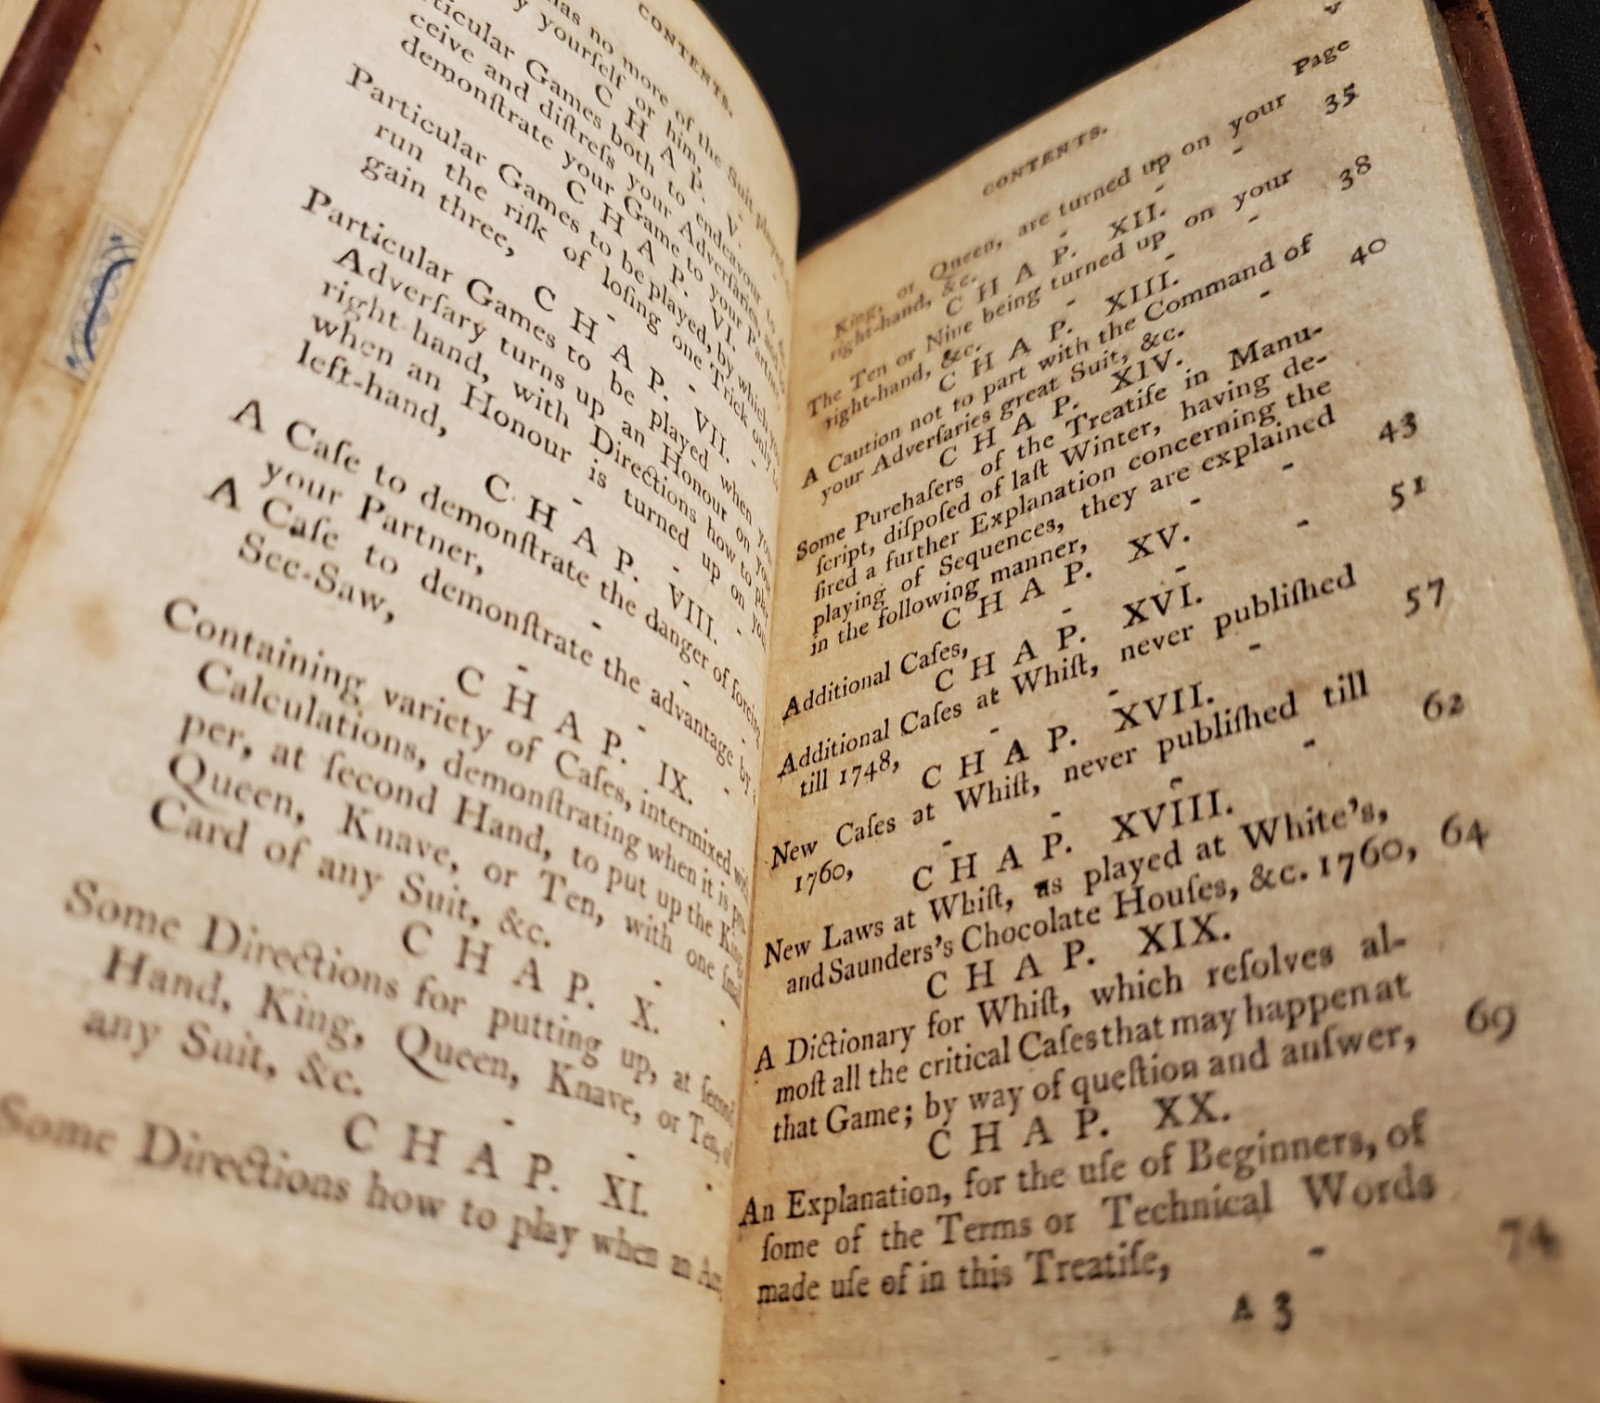 CONTENTS.
has no more of the Suit played
yourſelf or him,
C H A P. V.
ticular Games both to endeavour to
ceive and diſtreſs your Adverſaries, and
demonſtrate your Game to your Partner,
C H A P. VI.
Particular Games to be played, by which you
run the riſk of loſing one Trick only to
gain three, -
C H A P. VII.
Particular Games to be played when you
Adverſary turns up an Honour on you
right-hand, with Directions how to play
when an Honour is turned up on you
left-hand, - -
C H A P. VIII.
A Caſe to demonſtrate the danger of forcing
your Partner, - -
A Caſe to demonſtrate the advantage by
See-Saw, - -
C H A P. IX.
Containing variety of Caſes, intermixed with
Calculations, demonſtrating when it is pro-
per, at ſecond Hand, to put up the King,
Queen, Knave, or Ten, with one ſmall
Card of any Suit, &c. - -
C H A P. X.
Some Directions for putting up, at ſecond
Hand, King, Queen, Knave, or Ten, of
any Suit, &c. - - -
C H A P. XI.
Some Directions how to play when an
v
CONTENTS.
Page
King, or Queen, are turned up on your
right-hand, &c. - - - 35
C H A P. XII.
The Ten or Nine being turned up on your
right-hand, &c. - - - 38
C H A P. XIII.
A Caution not to part with the Command of
your Adverſaries great Suit, &c. - 40
C H A P. XIV.
Some Purchaſers of the Treatiſe in Manu-
ſcript, diſpoſed of laſt Winter, having de-
ſired a further Explanation concerning the
playing of Sequences, they are explained
in the following manner, - - 43
C H A P. XV.
Additional Caſes, - - - 51
C H A P. XVI.
Additional Caſes at Whiſt, never publiſhed
till 1748, - - - 57
C H A P. XVII.
New Caſes at Whiſt, never publiſhed till
1760, - - - - 62
C H A P. XVIII.
New Laws at Whiſt, as played at White's,
and Saunders's Chocolate Houſes, &c. 1760, 64
C H A P. XIX.
A Dictionary for Whiſt, which reſolves al-
moſt all the critical Caſes that may happen at
that Game; by way of queſtion and anſwer, 69
C H A P. XX.
An Explanation, for the uſe of Beginners, of
ſome of the Terms or Technical Words
made uſe of in this Treatiſe, - 74
A 3